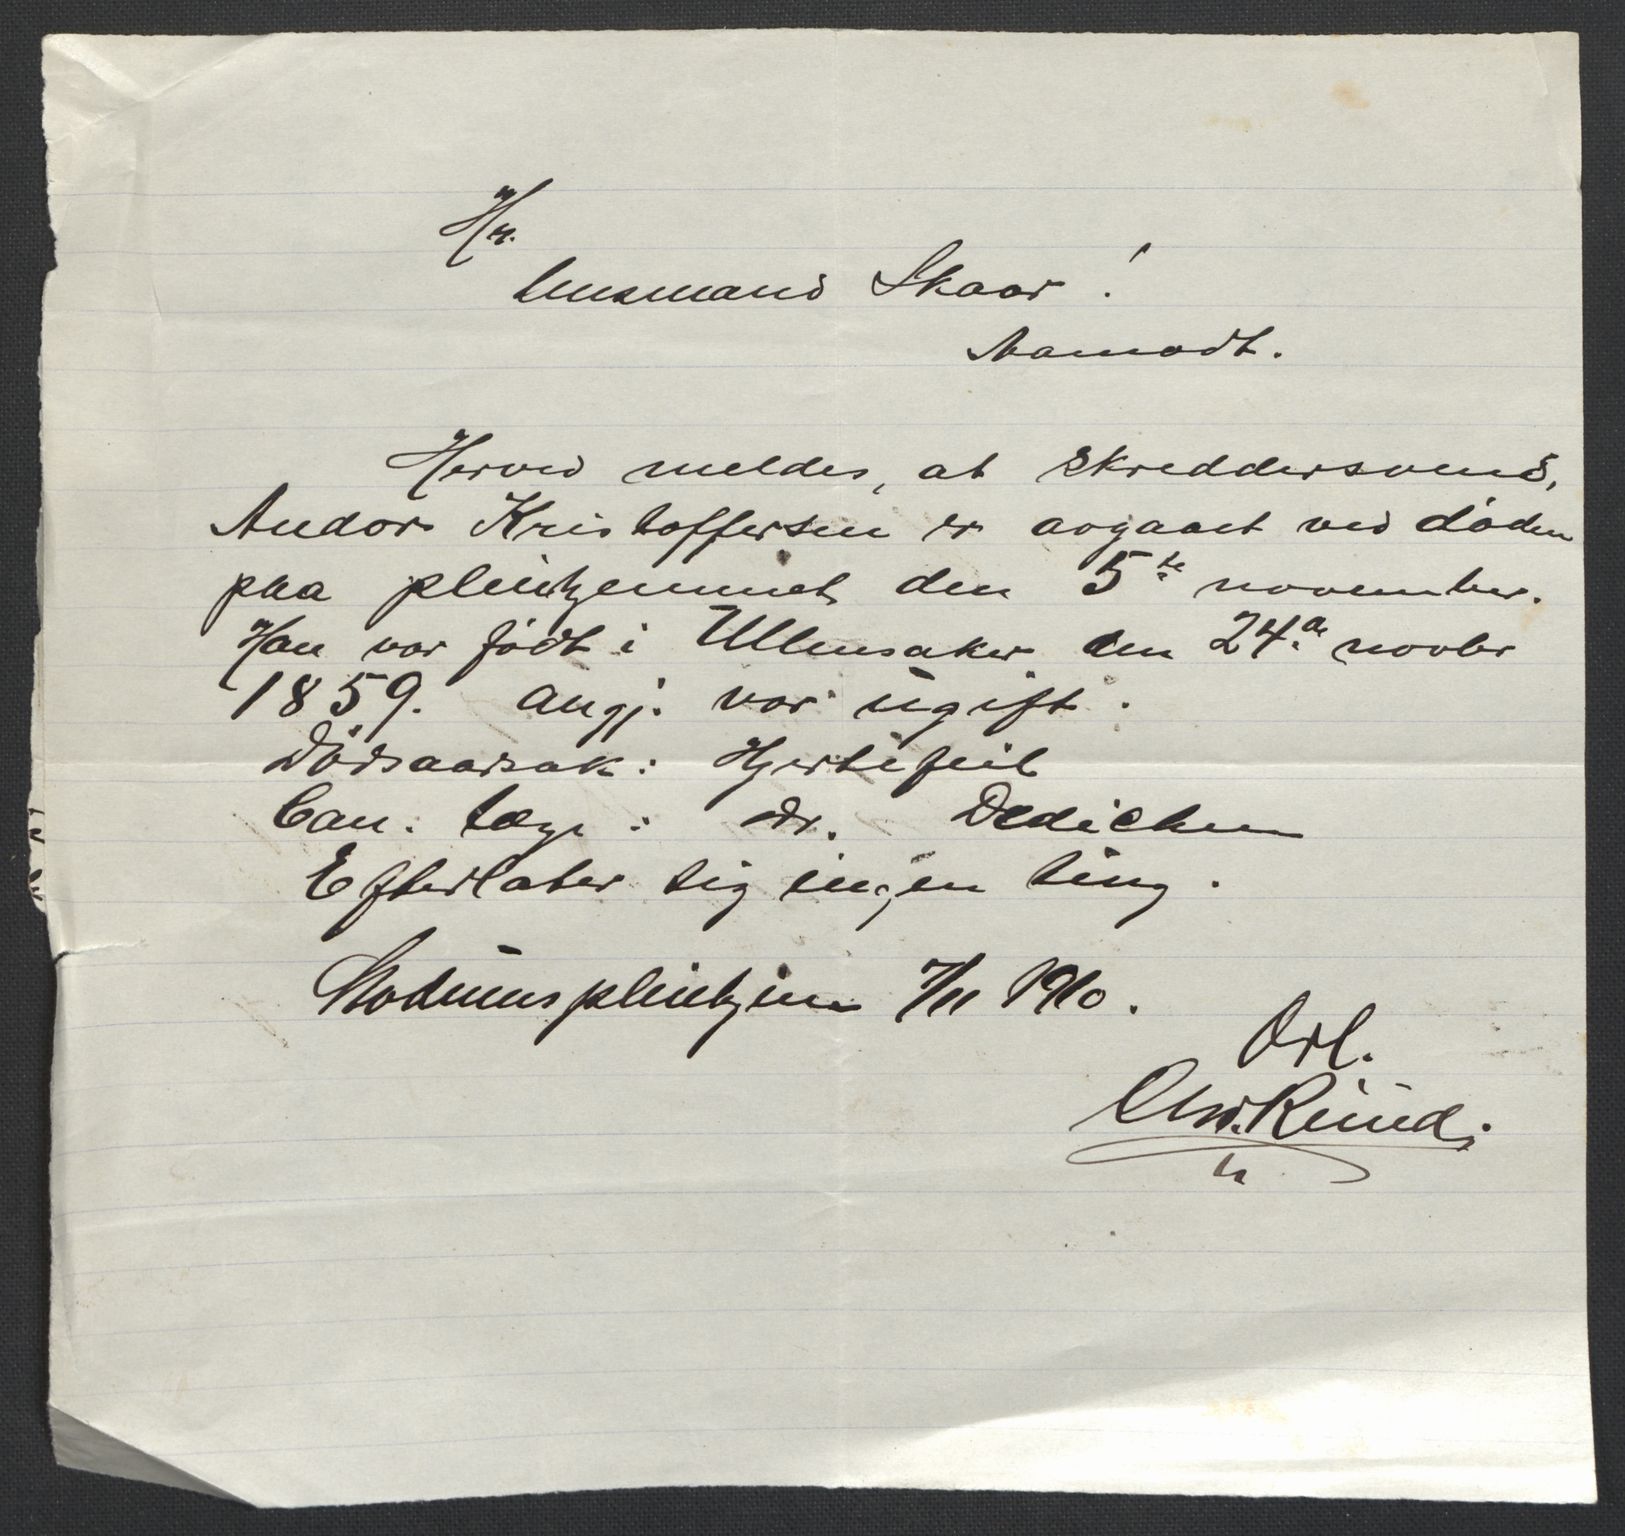 Hr.
lensmand Skaar!
Aamodt.
Herved meldes, at skreddersvend,
Andor Kristoffersen er avgaaet ved døden
paa pleiehjemmet den 5te november.
Han var født i Ullensaker den 24de novbr
1859. Angj. var ugift.
Dødsaarsak: Hjertefeil
Can. læge: dr. Dedichen
Efterlater sig ingen ting.
Modums pleiehjem 7/11 1910.
Ærb.
Chr. Ruud.